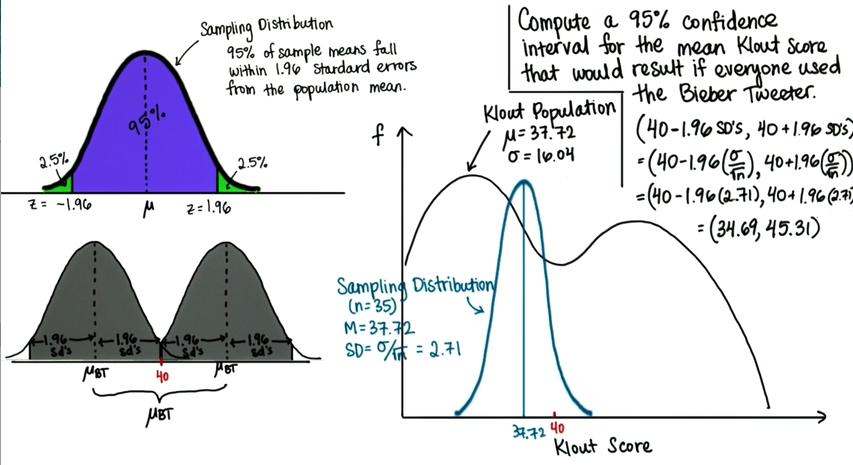 Sampling Distribution
95% of sample means fall
within 1.96 standard errors
from the population mean.
95%
2.5%
2.5%
z = -1.96
μ
z = 1.96
1.96
sd's
1.96
sd's
1.96
sd's
1.96
sd's
μBT
40
μBT
μBT
Compute a 95% confidence
interval for the mean Klout Score
that would result if everyone used
the Bieber Tweeter.
(40-1.96 SD'S, 40+1.96 SD'S)
=(40-1.96(σ/√n), 40+1.96(σ/√n))
=(40-1.96(2.71), 40+1.96(2.71
=(34.69, 45.31)
f
Klout Population
μ=37.72
σ=16.04
Sampling Distribution
(n=35)
M=37.72
SD=σ/√n = 2.71
37.72 40
Klout Score